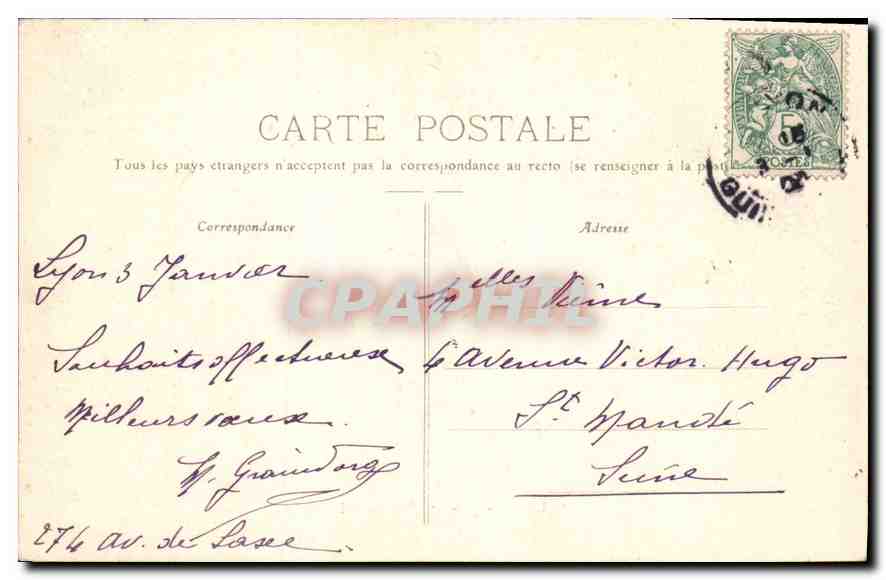 CARTE POSTALE
Tous les pays étrangers n'acceptent pas la correspondance au recto (se renseigner à la post
5
POSTES
GUI
Correspondance
Adresse
Lyon 3 Janvier
Souhaits affectueux
Meilleurs vœux
M. Graindorge
274 av. de Saxe
Melles
6 Avenue Victor Hugo
St Mandé
Seine
CPAPHIL